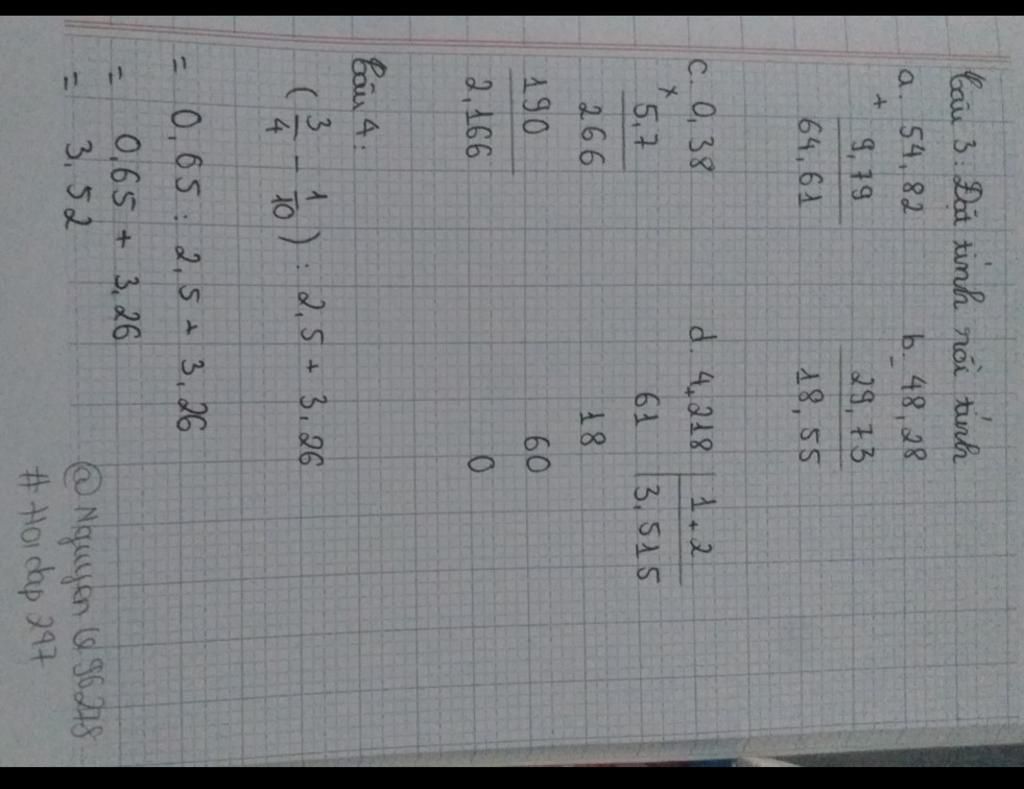 Câu 3: Đặt tính rồi tính
a. 54,82
+ 9,79
64,61
b. 48,28
- 29,73
18,55
c. 0,38
× 5,7
266
190
2,166
d. 4,218 1,2
61 3,515
18
60
0
Câu 4:
(3/4 - 1/10) : 2,5 + 3,26
= 0,65 : 2,5 + 3,26
= 0,65 + 3,26
= 3,52
@Nguyen
#Hoidap 247